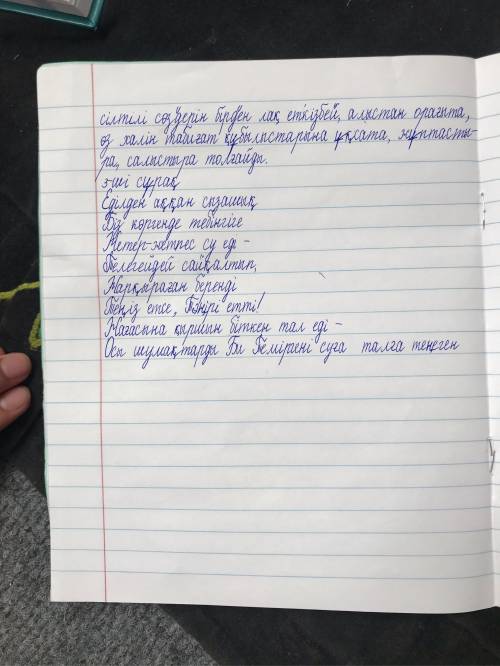 сілтілі сөздерін бірден лақ еткізбей, алыстан орағыта,
өз халін табиғат құбылыстарына ұқсата, жұптасты-
ра, салыстыра толғайды.
5-ші сұрақ
Еділден аққан сызашық
Біз көргенде тебінгіге
Жетер-жетпес су еді –
Телегейдей сайқалтып,
Жарқыраған беренді
Теңіз етсе, Тәңірі етті!
Жағасына қыршын біткен тал еді –
Осы шумақтарды Би Темірені суға талға теңеген